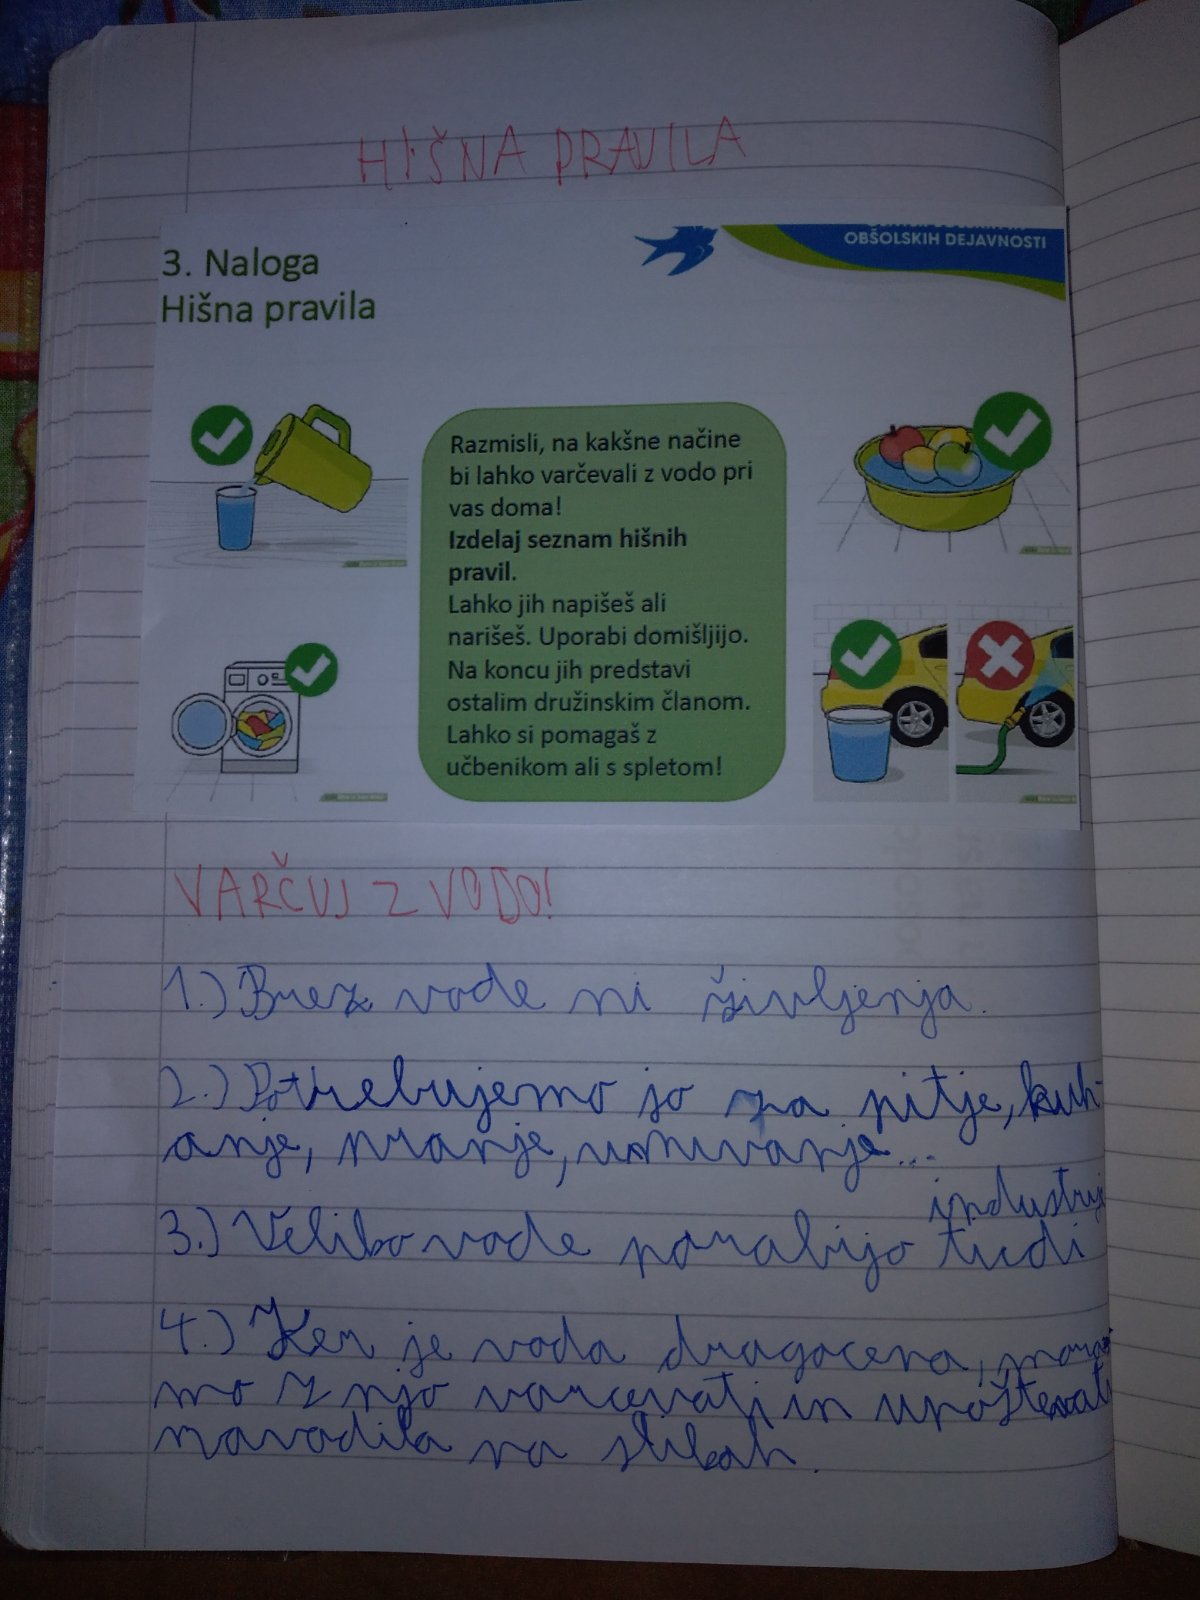 HIŠNA PRAVILA
3. Naloga
Hišna pravila
OBŠOLSKIH DEJAVNOSTI
Razmisli, na kakšne načine
bi lahko varčevali z vodo pri
vas doma!
Izdelaj seznam hišnih
pravil.
Lahko jih napišeš ali
narišeš. Uporabi domišljijo.
Na koncu jih predstavi
ostalim družinskim članom.
Lahko si pomagaš z
učbenikom ali s spletom!
VARČUJ Z VODO!
1.) Brez vode ni življenja.
2.) Potrebujemo jo za pitje, kuh-
anje, pranje, umivanje...
industriji
3.) Veliko vode porabijo tudi
4.) Ker je voda dragocena, mora
mo z njo varcevati in upoštevati
navodila na slikah.